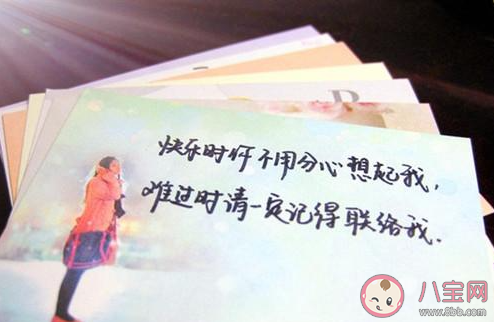 快乐时你不用分心想起我,
难过时请一定记得联络我.
八宝网